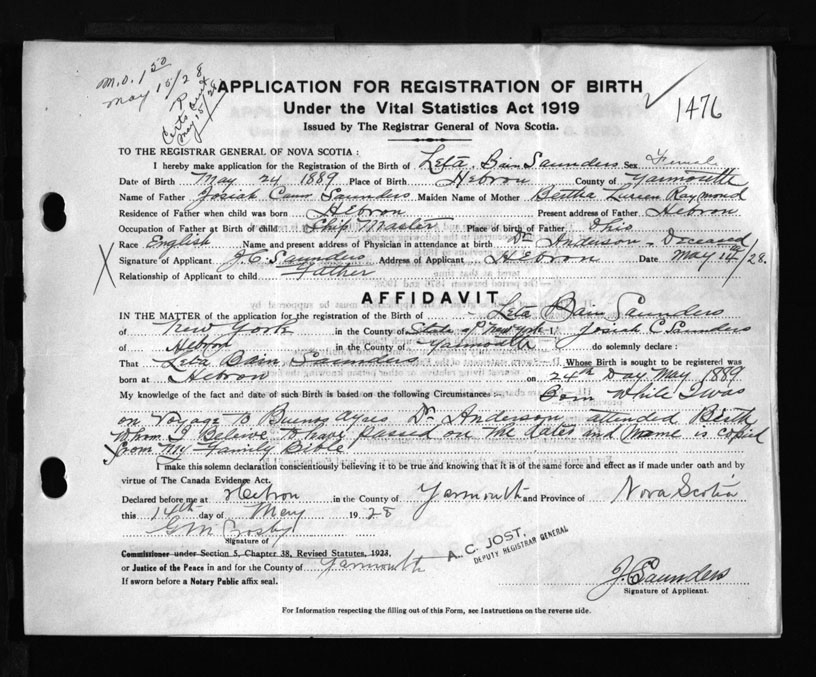 M.O. 1 50
May 15/28
Certs Sent
May 15/28
APPLICATION FOR REGISTRATION OF BIRTH
Under the Vital Statistics Act 1919
Issued by The Registrar General of Nova Scotia.
1476
TO THE REGISTRAR GENERAL OF NOVA SCOTIA :
I hereby make application for the Registration of the Birth of Leta Bain Saunders Sex Female
Date of Birth May 24 1889 Place of Birth Hebron County of Yarmouth
Name of Father Josiah Saunders Maiden Name of Mother Bertha Raymond
Residence of Father when child was born Hebron Present address of Father Hebron
Occupation of Father at Birth of child Ship Master Place of birth of Father Ohio
Race English Name and present address of Physician in attendance at birth Dr Anderson - Deceased
Signature of Applicant J.C. Saunders Address of Applicant Hebron Date May 14th/28.
Relationship of Applicant to child Father
AFFIDAVIT
IN THE MATTER of the application for the registration of the Birth of Leta Bain Saunders
of New York in the County of State of New York I Josiah C Saunders
of Hebron in the County of Yarmouth do solemnly declare :
That Leta Bain Saunders Whose Birth is sought to be registered was
born at Hebron on 24th Day May 1889
My knowledge of the fact and date of such Birth is based on the following Circumstances: Born While I was
on Voyage to Buenos Ayres Dr Anderson attended Birth
Whom I Beleive to have passed on the dates and Name is copied
from My Family Bible
I make this solemn declaration conscientiously believing it to be true and knowing that it is of the same force and effect as if made under oath and by
virtue of The Canada Evidence Act.
Declared before me at Hebron in the County of Yarmouth and Province of Nova Scotia
this 14th day of May 1928
G M Crosby
Signature of
Commissioner under Section 5, Chapter 38, Revised Statutes, 1923,
or Justice of the Peace in and for the County of Yarmouth
A. C. JOST,
DEPUTY REGISTRAR GENERAL
If sworn before a Notary Public affix seal.
J.C. Saunders
Signature of Applicant.
For Information respecting the filling out of this Form, see Instructions on the reverse side.